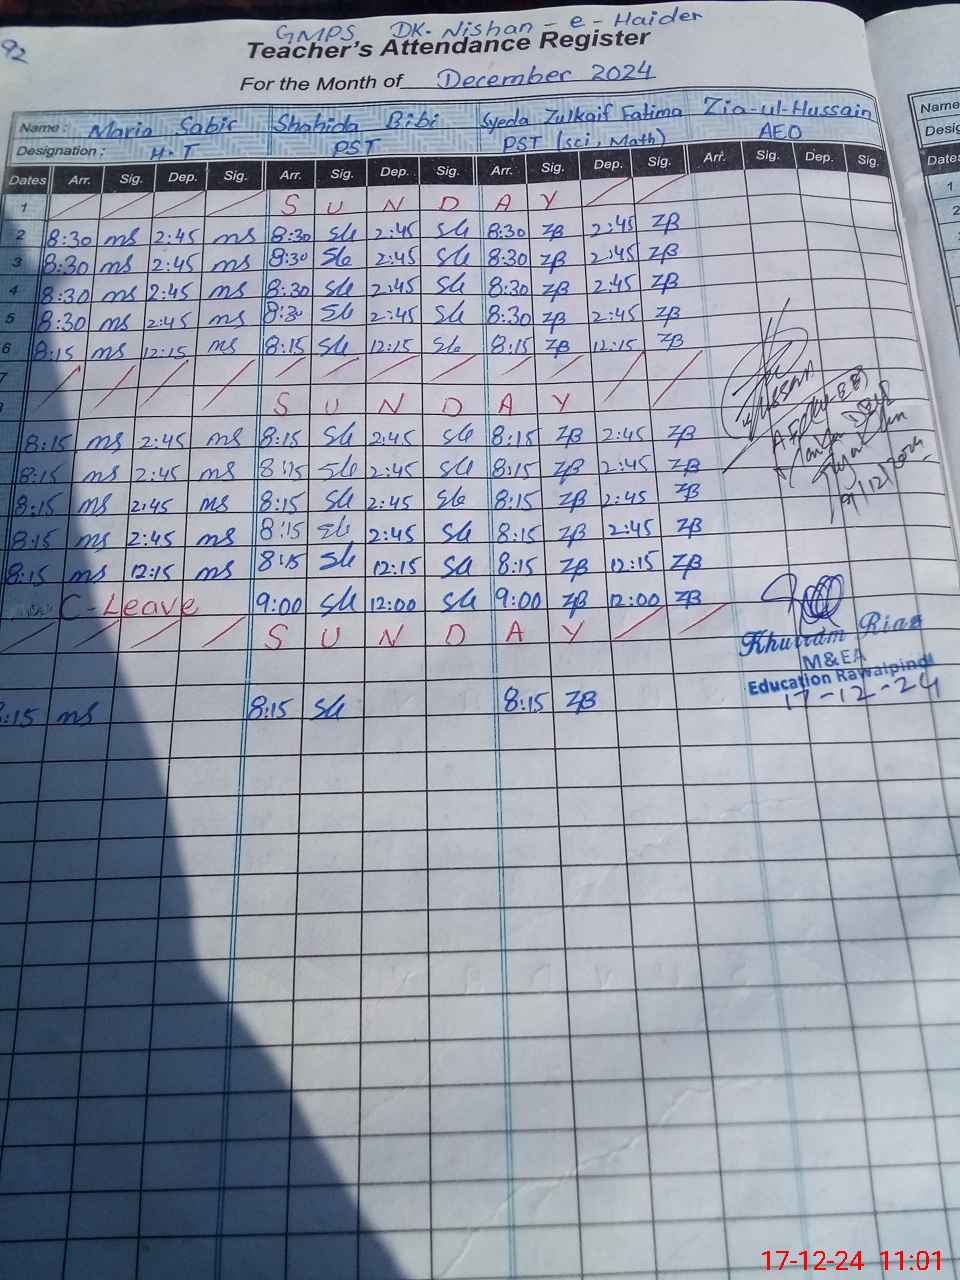 92
GMPS DK. Nishan - e - Haider
Teacher's Attendance Register
For the Month of December 2024
Name : Maria Sabir Shahida Bibi Syeda Zulkaif Fatima Zia-ul-Hussain Name
Designation : H.T PST PST (sci, Math) AEO Desig
Dates Arr. Sig. Dep. Sig. Arr. Sig. Dep. Sig. Arr. Sig. Dep. Sig. Arr. Sig. Dep. Sig. Dates
1 S U N D A Y 1
2 8:30 ms 2:45 ms 8:30 Sh 2:45 Sh 8:30 ZB 2:45 ZB 2
3 8:30 ms 2:45 ms 8:30 Sh 2:45 Sh 8:30 ZB 2:45 ZB
4 8:30 ms 2:45 ms 8:30 Sh 2:45 Sh 8:30 ZB 2:45 ZB
5 8:30 ms 2:45 ms 8:30 Sh 2:45 Sh 8:30 ZB 2:45 ZB
6 8:15 ms 12:15 ms 8:15 Sh 12:15 Sh 8:15 ZB 12:15 ZB
7
S U N D A Y
8:15 ms 2:45 ms 8:15 Sh 2:45 Sh 8:15 ZB 2:45 ZB
8:15 ms 2:45 ms 8:15 Sh 2:45 Sh 8:15 ZB 2:45 ZB
8:15 ms 2:45 ms 8:15 Sh 2:45 Sh 8:15 ZB 2:45 ZB
8:15 ms 2:45 ms 8:15 Sh 2:45 Sh 8:15 ZB 2:45 ZB
8:15 ms 12:15 ms 8:15 Sh 12:15 Sh 8:15 ZB 12:15 ZB
C-Leave 9:00 Sh 12:00 Sh 9:00 ZB 12:00 ZB
S U N D A Y
8:15 ms 8:15 Sh 8:15 ZB
Khurram Riaz
M&EA
Education Rawalpindi
17-12-24
17-12-24 11:01